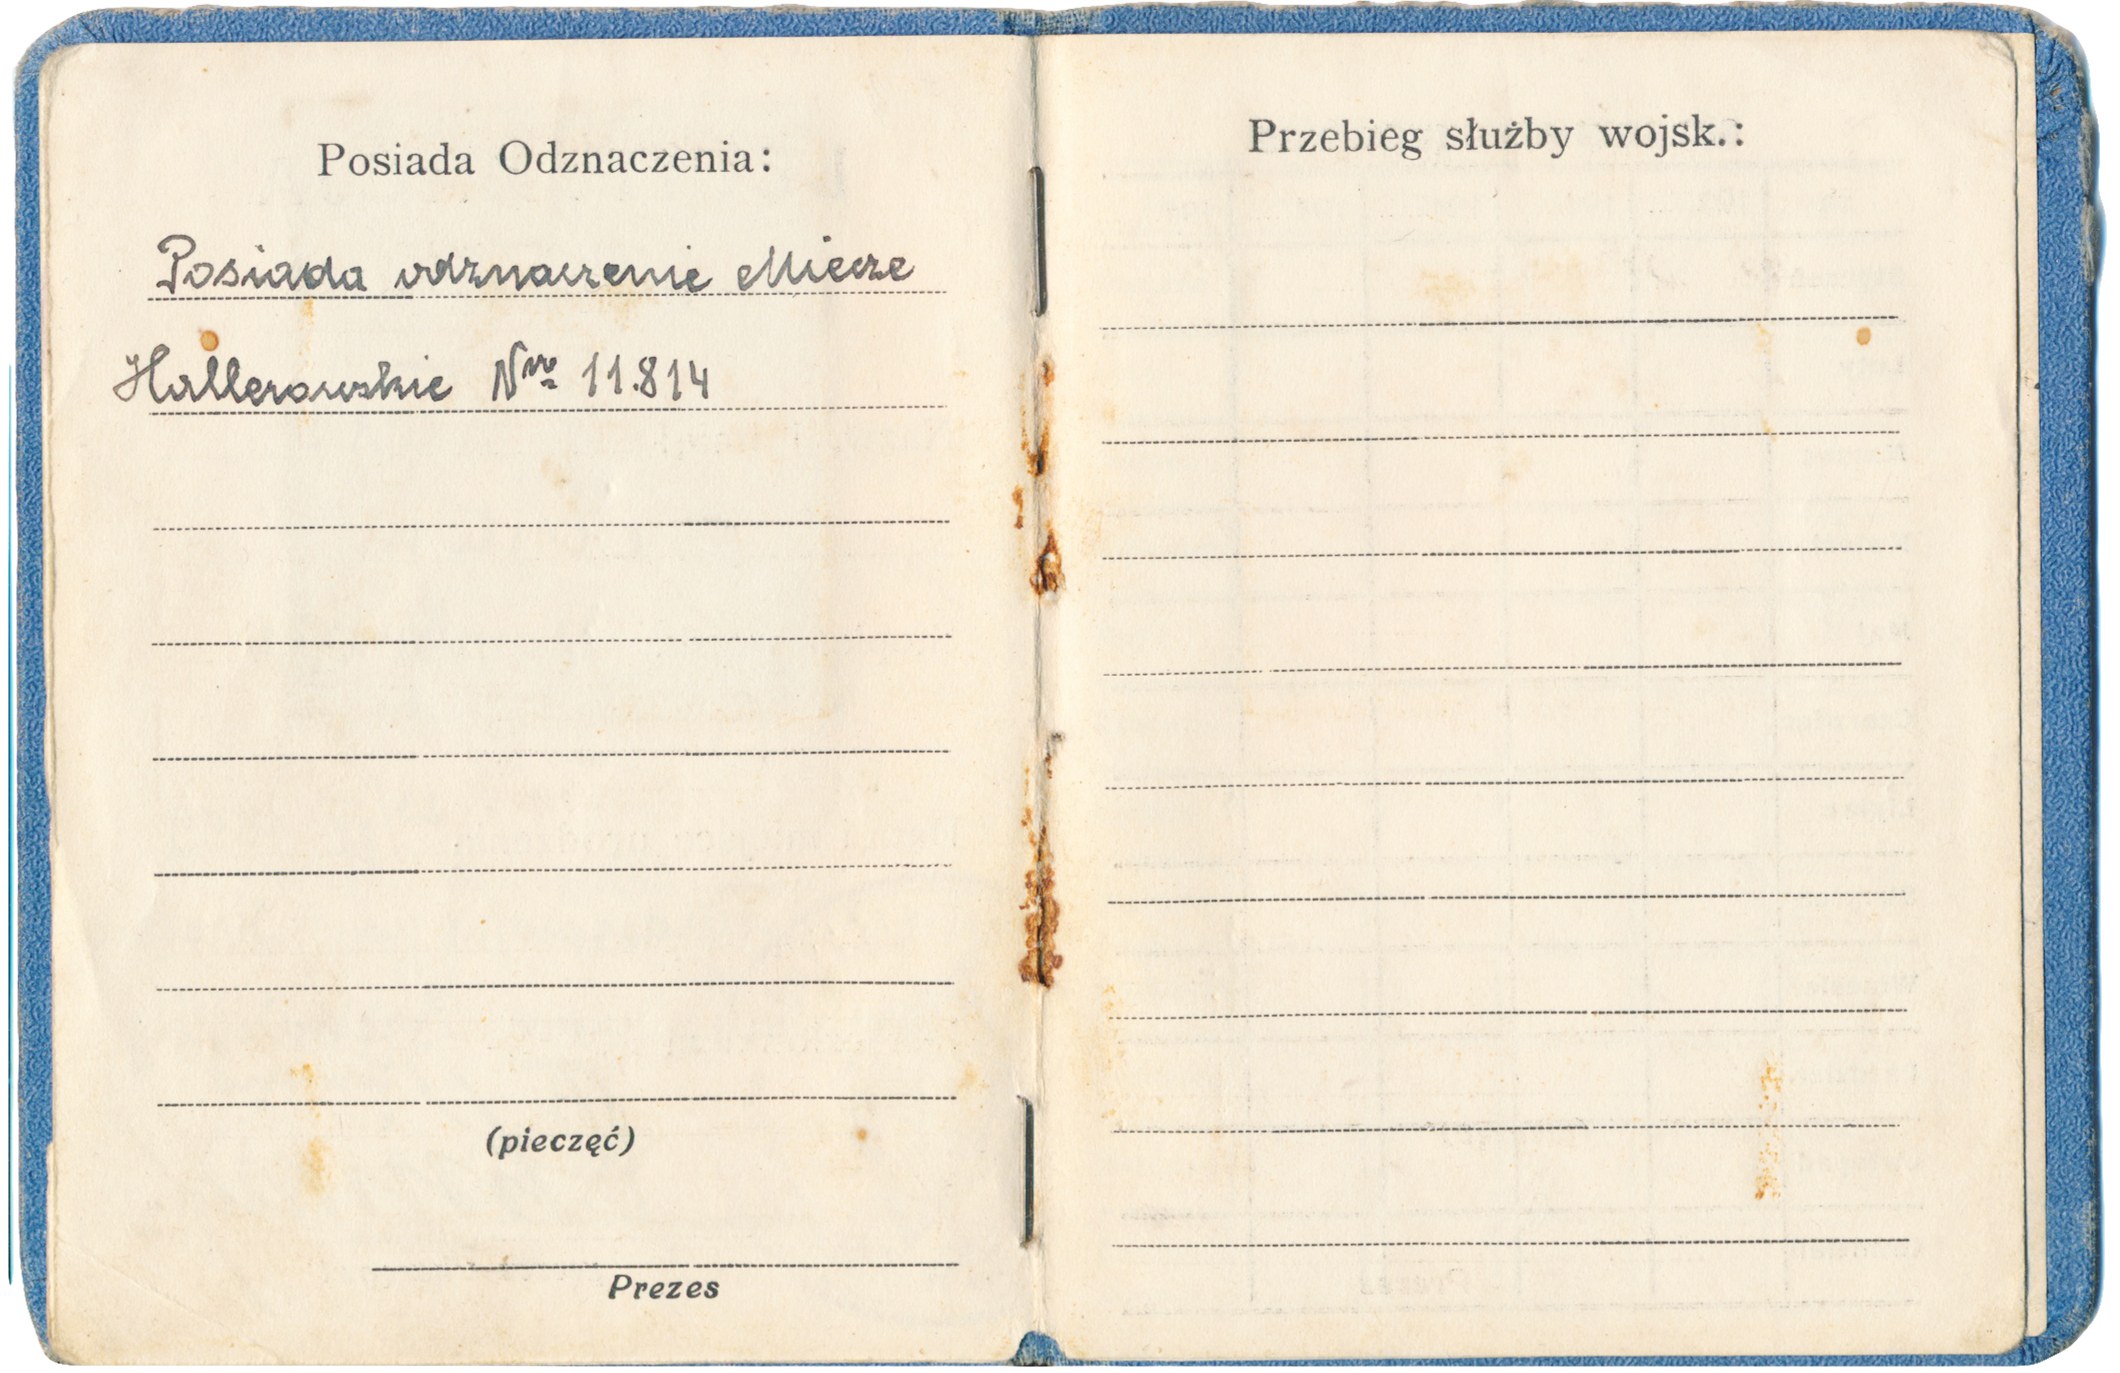 Posiada Odznaczenia:
Posiada odznaczenie Miecze
Hallerowskie Nro 11.814
(pieczęć)
Prezes
Przebieg służby wojsk.: